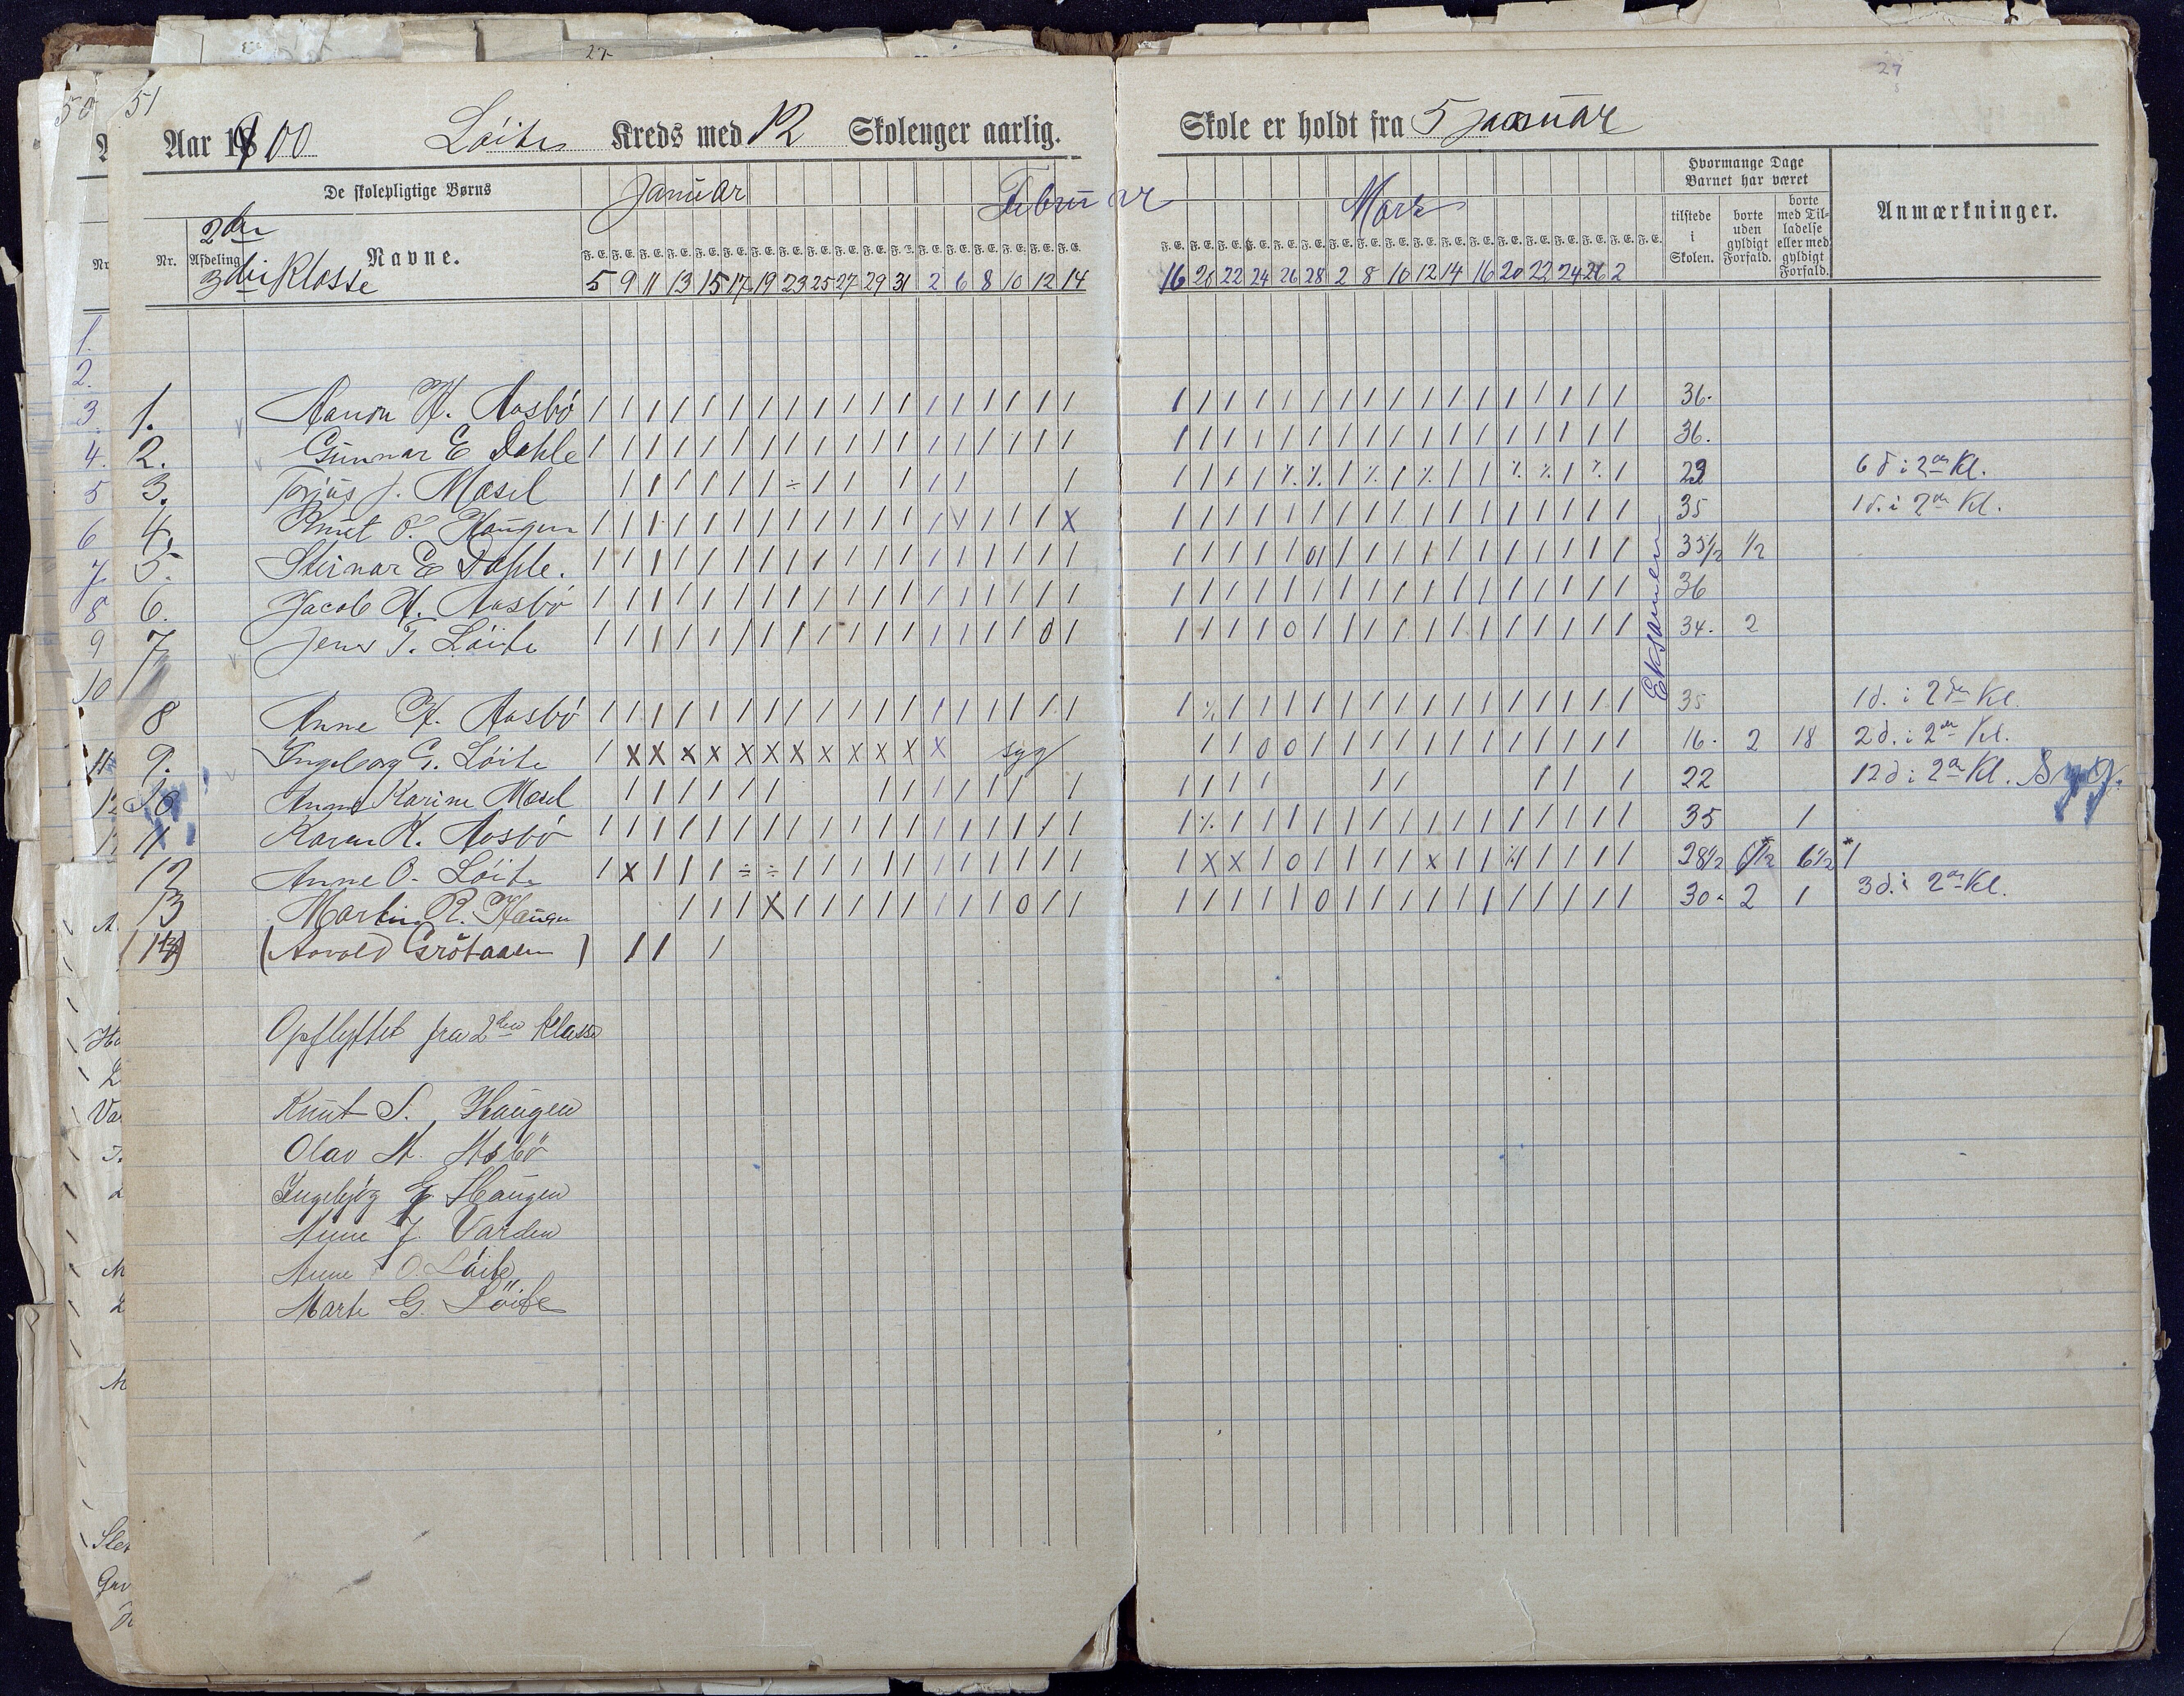 51
27
Aar 1900 Löite Kreds med 12 Skolenger aarlig. Skole er holdt fra 5 januar
De skolepligtige Børns Januar Februar Marts
Hvormange Dage Barnet har været
Anmærkninger.
tilstede i Skolen.
borte uden gyldigt Forfald.
borte med Tilladelse eller med gyldigt Forfald.
2den
Nr. Afdeling Navne.
3die Klasse
5 9 11 13 15 17 19 23 25 27 29 31 2 6 8 10 12 14 16 20 22 24 26 28 2 8 10 12 14 16 20 22 24 26 2
1. Aanon H. Aasbö 36.
2. Gunnar E Dahle 36.
3. Torjus J. Mosel 29 6 d i 2den Kl.
4. Knut O. Haugen 35 1 d. i 2den Kl.
5. Steinar E Dahle. 35 1/2 1/2
6. Jacob H. Aasbö 36
7 Jens T. Löite 34. 2
Eksamen
8 Anne H. Aasbö 35 1 d. i 2den Kl.
9. Ingeborg G. Löite syg 16. 2 18 2 d. i 2den Kl.
10 Anne Karine Mosel 22 12 d i 2den Kl. Syg.
11 Karen K. Aasbö 35 1
12 Anne O. Löite 28 1/2 1 1/2 6 1/2
13 Martin R. Haugen 30. 2 1 3 d. i 2den Kl.
(14) (Aavold Grötaasen)
Opflyttet fra 2den Klasse
Knut S. Haugen
Olav H. Asbö
Ingebjög G Haugen
Anne J. Varden
Anne O. Löite
Marte G. Löite